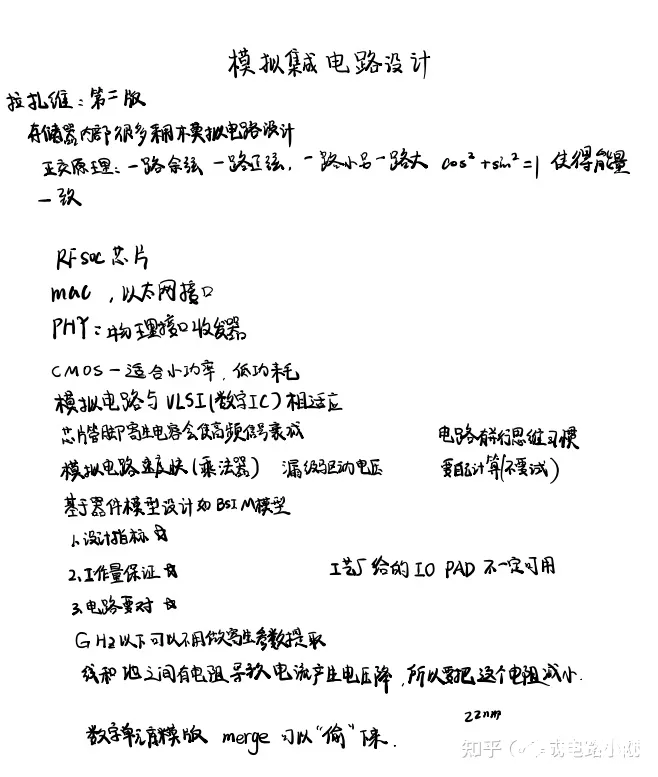 模拟集成电路设计
拉扎维：第二版
存储器内部很多利用模拟电路设计
正交原理：一路余弦 一路正弦，一路小另一路大 cos²+sin²=1 使得能量
一致
RFsoc 芯片
mac ，以太网接口
PHY：物理接口收发器
CMOS－适合小功率，低功耗
模拟电路与VLSI(数字IC)相适应
芯片管脚寄生电容会使高频信号衰减
电路有并行思维习惯
模拟电路速度快(乘法器) 漏级驱动电压
要自己计算(不要试)
基于器件模型设计如BSIM模型
1.设计指标☆
2.工作量保证☆
工艺厂给的IO PAD 不一定可用
3.电路要对 ☆
GHz以下可以不用做寄生参数提取
线和地之间有电阻导致电流产生电压降,所以要把这个电阻减小.
22nm
数字单元有模版 merge 可以“偷”下来.
知乎